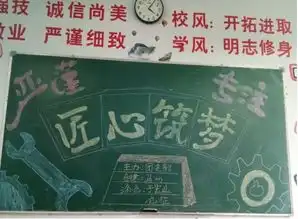 强技 诚信尚美
敬业 严谨细致
校风：开拓进取
学风：明志修身
严谨
专注
匠心筑梦